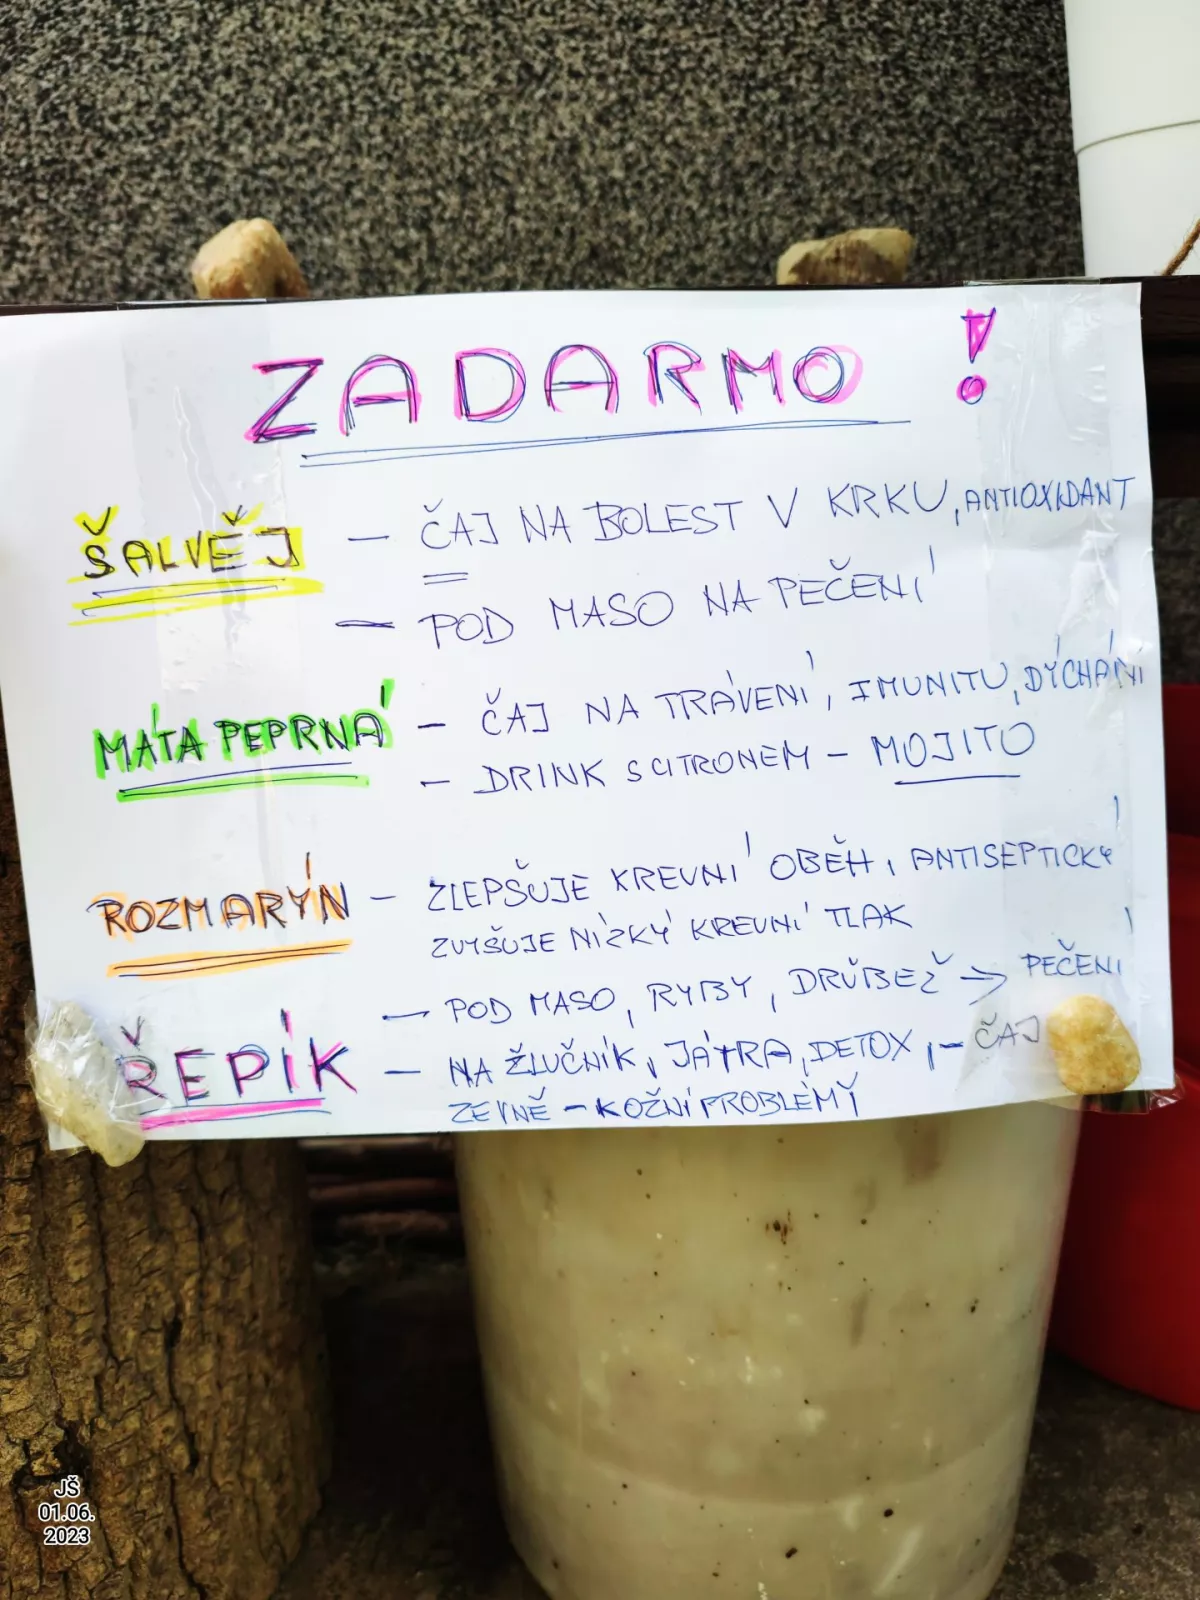 ZADARMO !
ŠALVĚJ — ČAJ NA BOLEST V KRKU, ANTIOXIDANT
— POD MASO NA PEČENÍ
MÁTA PEPRNÁ — ČAJ NA TRÁVENÍ, IMUNITU, DÝCHÁNÍ
— DRINK S CITRONEM — MOJITO
ROZMARÝN — ZLEPŠUJE KREVNÍ OBĚH, ANTISEPTICKÝ
ZVYŠUJE NÍZKÝ KREVNÍ TLAK
— POD MASO, RYBY, DRŮBEŽ → PEČENÍ
ŘEPÍK — NA ŽLUČNÍK, JÁTRA, DETOX, — ČAJ
ZEVNĚ — KOŽNÍ PROBLÉMY
JŠ
01.06.
2023